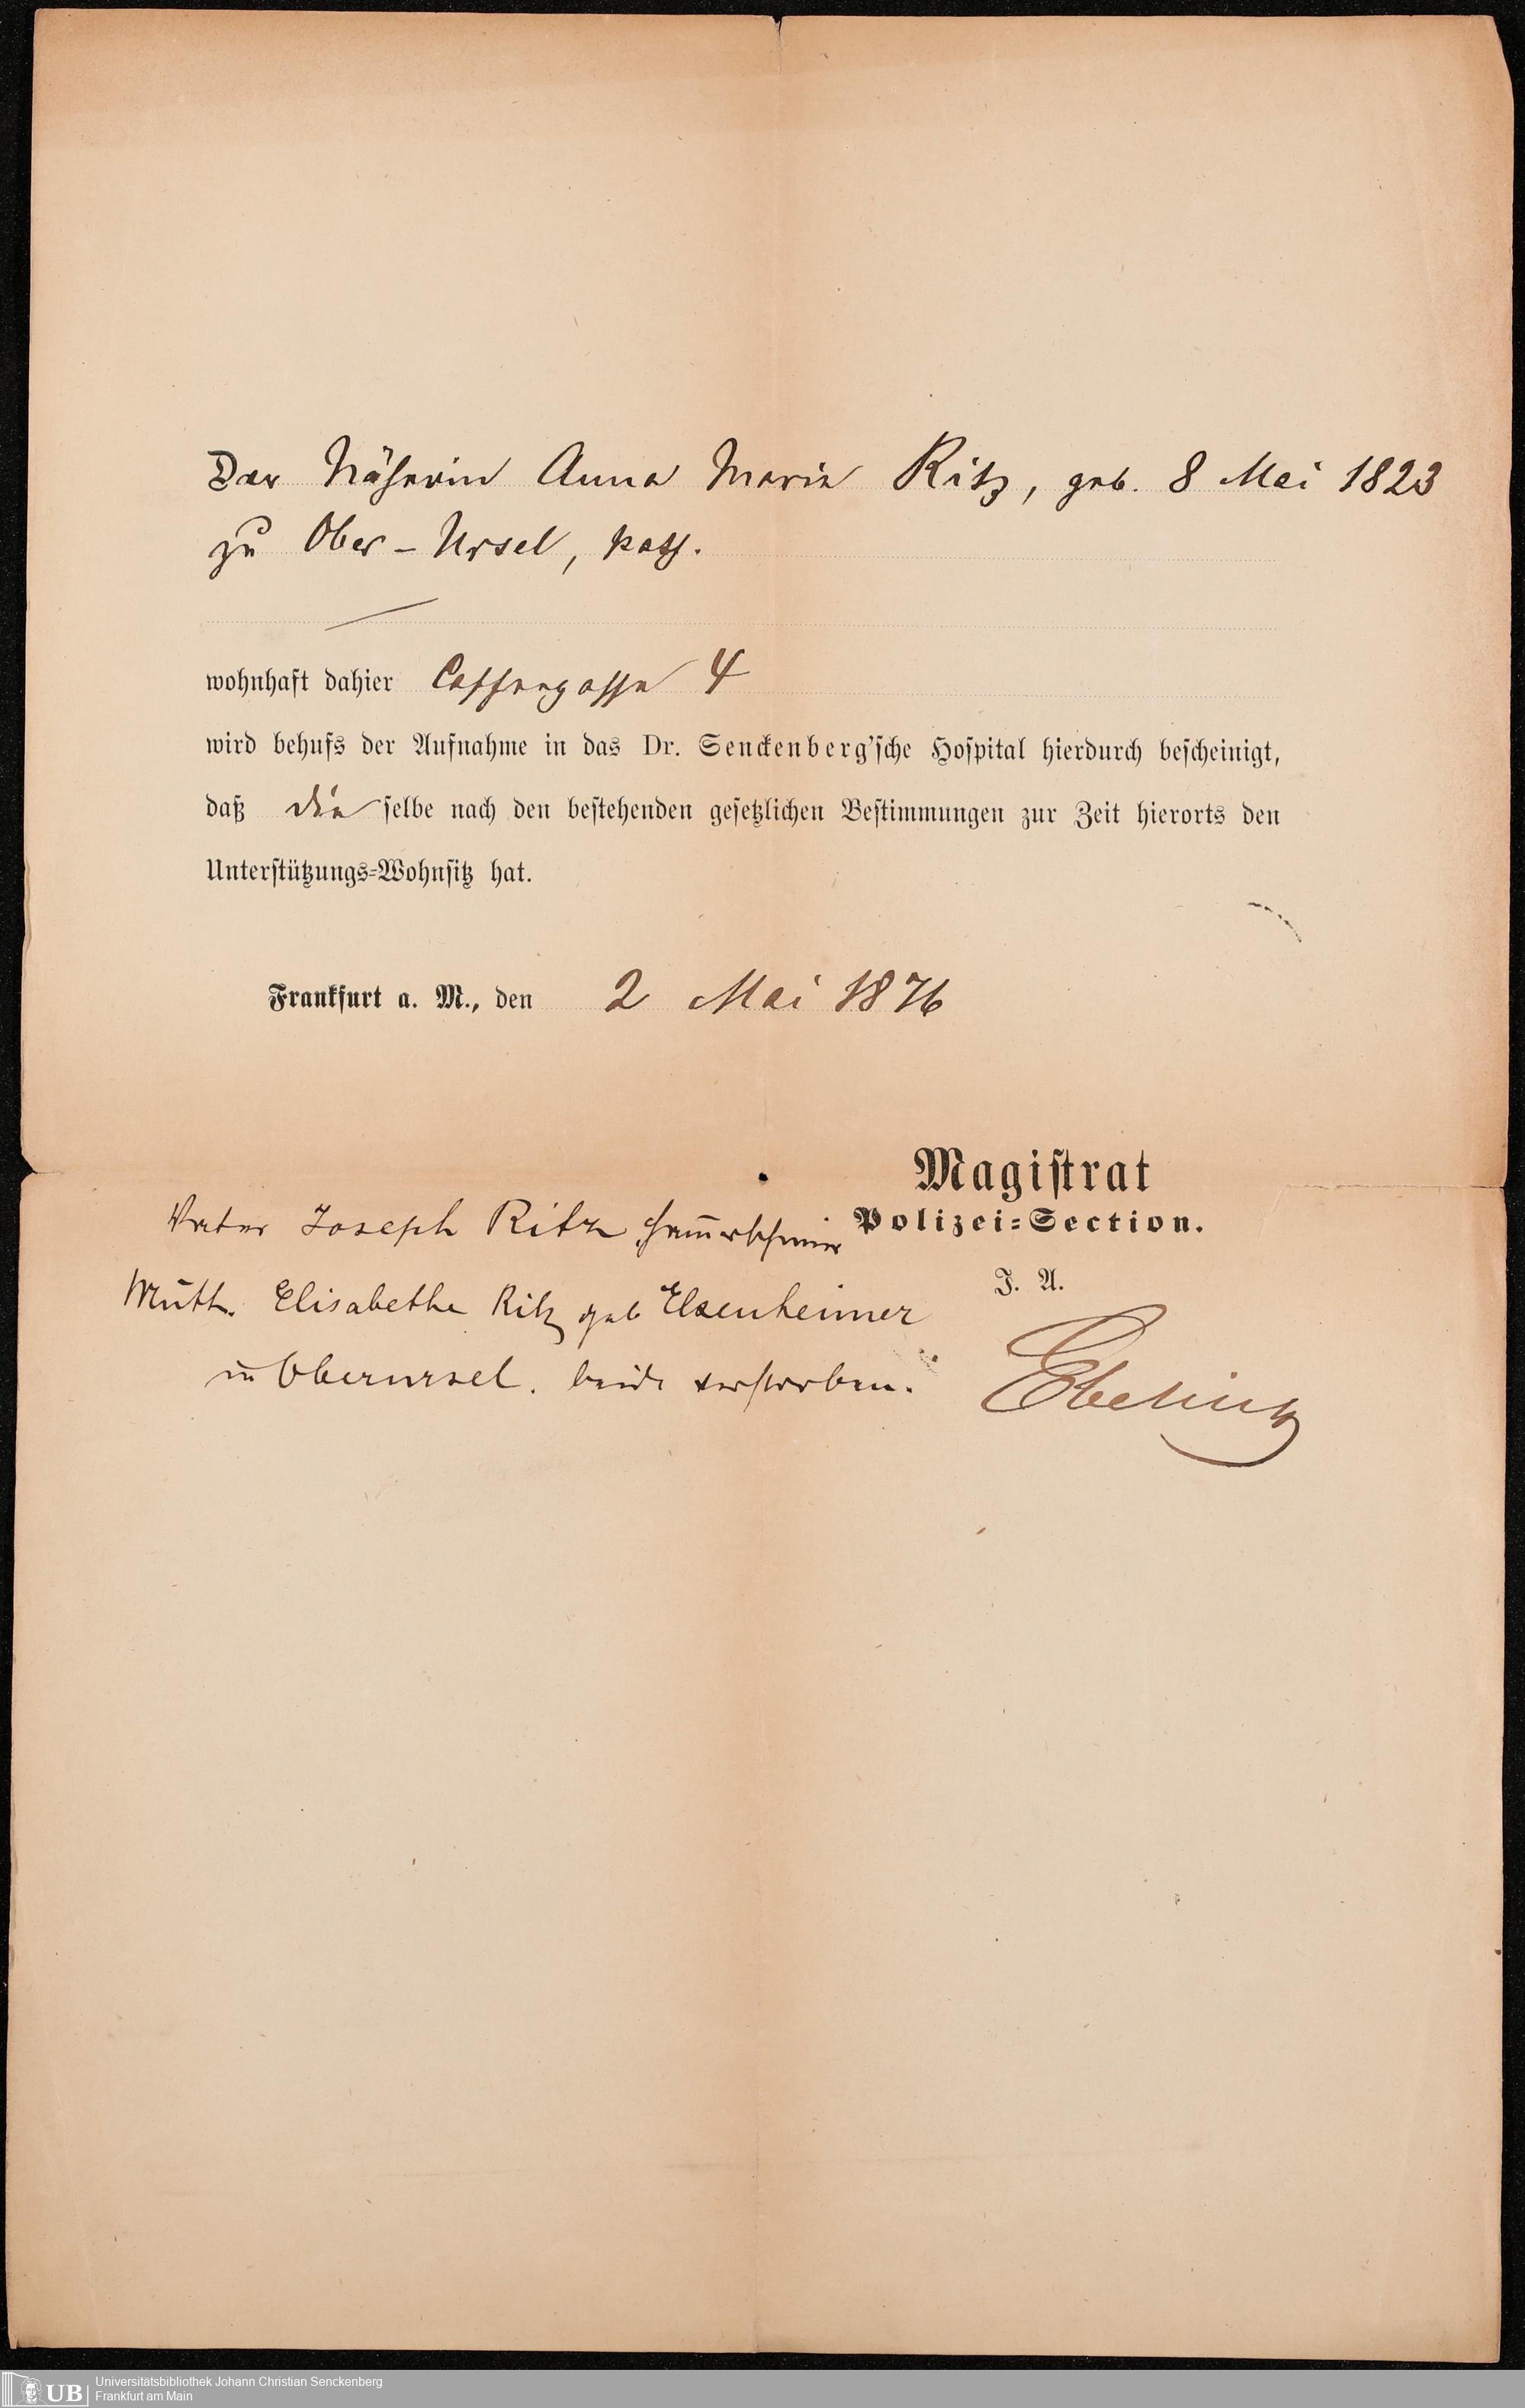 Der Näherin Anna Maria Ritz, geb. 8 Mai 1823
zu Ober-Ursel, kath.
wohnhaft dahier Caffeegasse 4
wird behufs der Aufnahme in das Dr. Senckenberg'sche Hospital hierdurch bescheinigt,
daß dieselbe nach den bestehenden gesetzlichen Bestimmungen zur Zeit hierorts den
Unterstützungs-Wohnsitz hat.
Frankfurt a. M., den 2 Mai 1876
Magistrat
Polizei-Section.
J. A.
Vater Joseph Ritz
Mutt. Elisabetha Ritz geb Elsenheimer
in Oberursel. beide verstorben.
UB Universitätsbibliothek Johann Christian Senckenberg
Frankfurt am Main